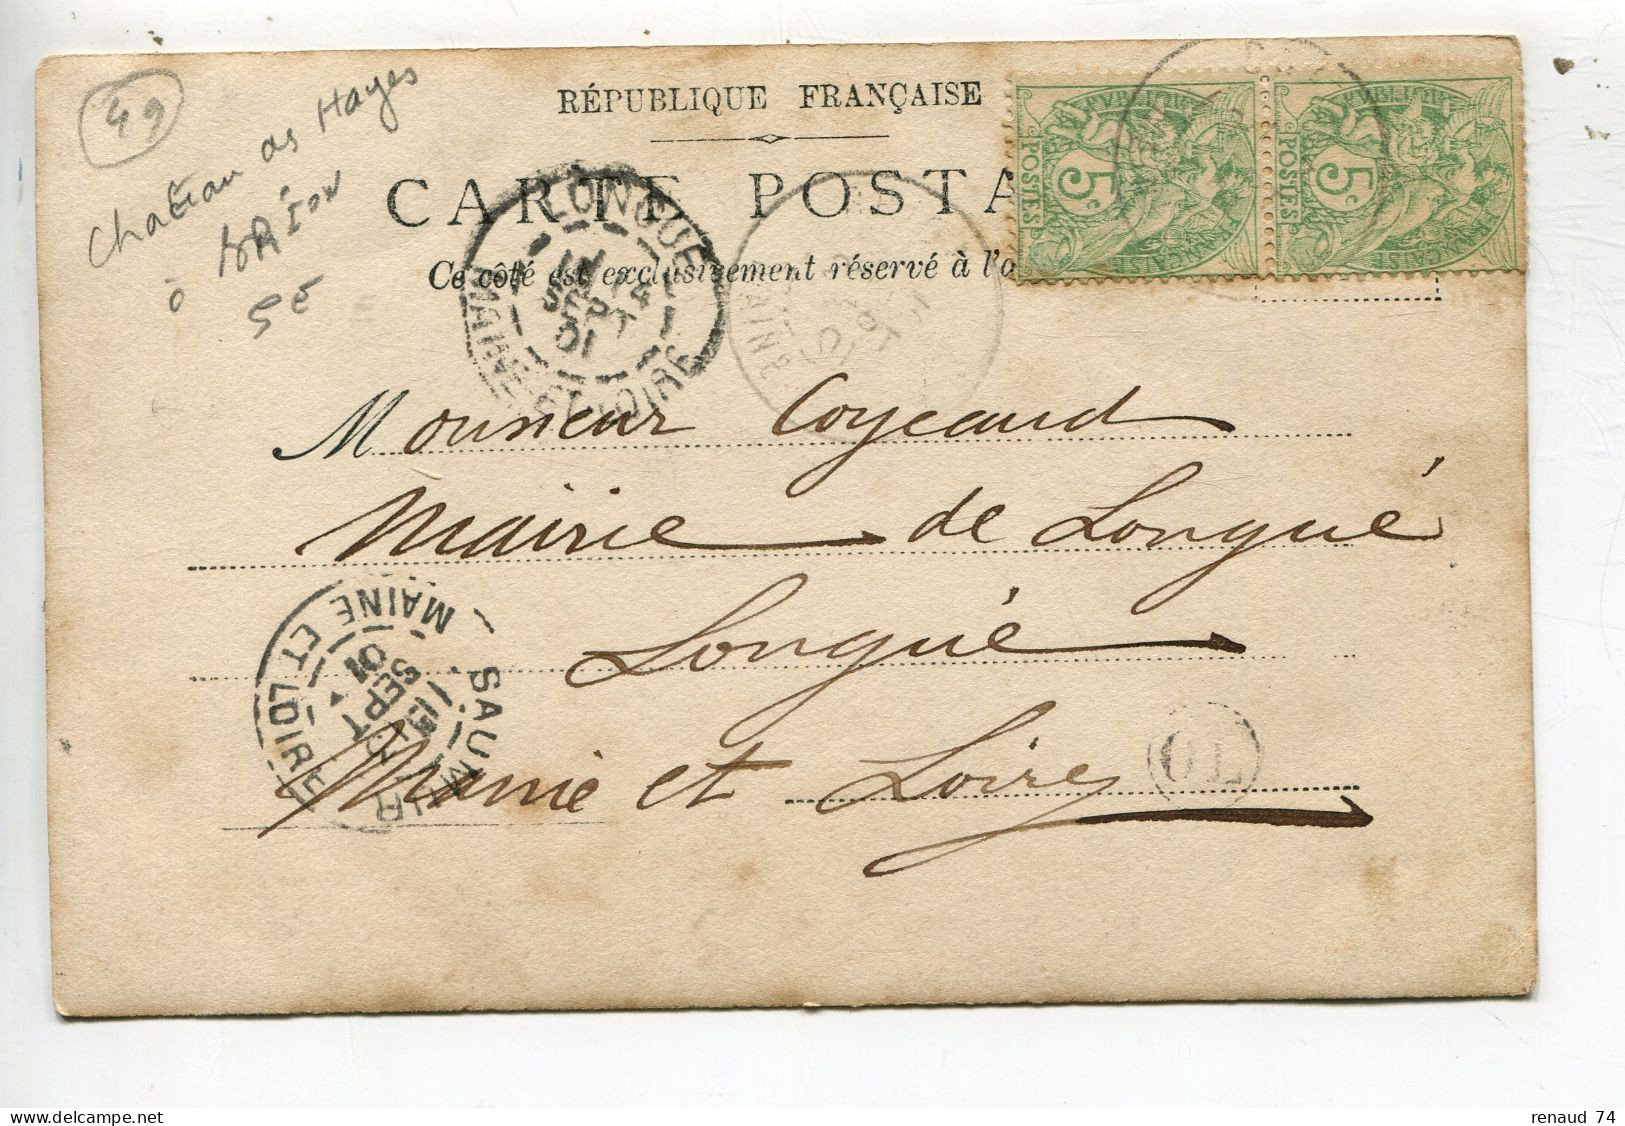 49
Chateau des Hayes
à BRION
5€
RÉPUBLIQUE FRANÇAISE
CARTE POSTA
Ce côté est exclusivement réservé à l'a
RÉPUBLIQUE FRANÇAISE
5c
POSTES
RÉPUBLIQUE FRANÇAISE
5c
POSTES
LONGUE
SEPT
01
MAINE-ET-LOIRE
Monsieur Coyeaud
Mairie de Longué
Longué
Maine et Loire
SAUMUR
SEPT
01
MAINE ET LOIRE
OL
www.delcampe.net
renaud 74